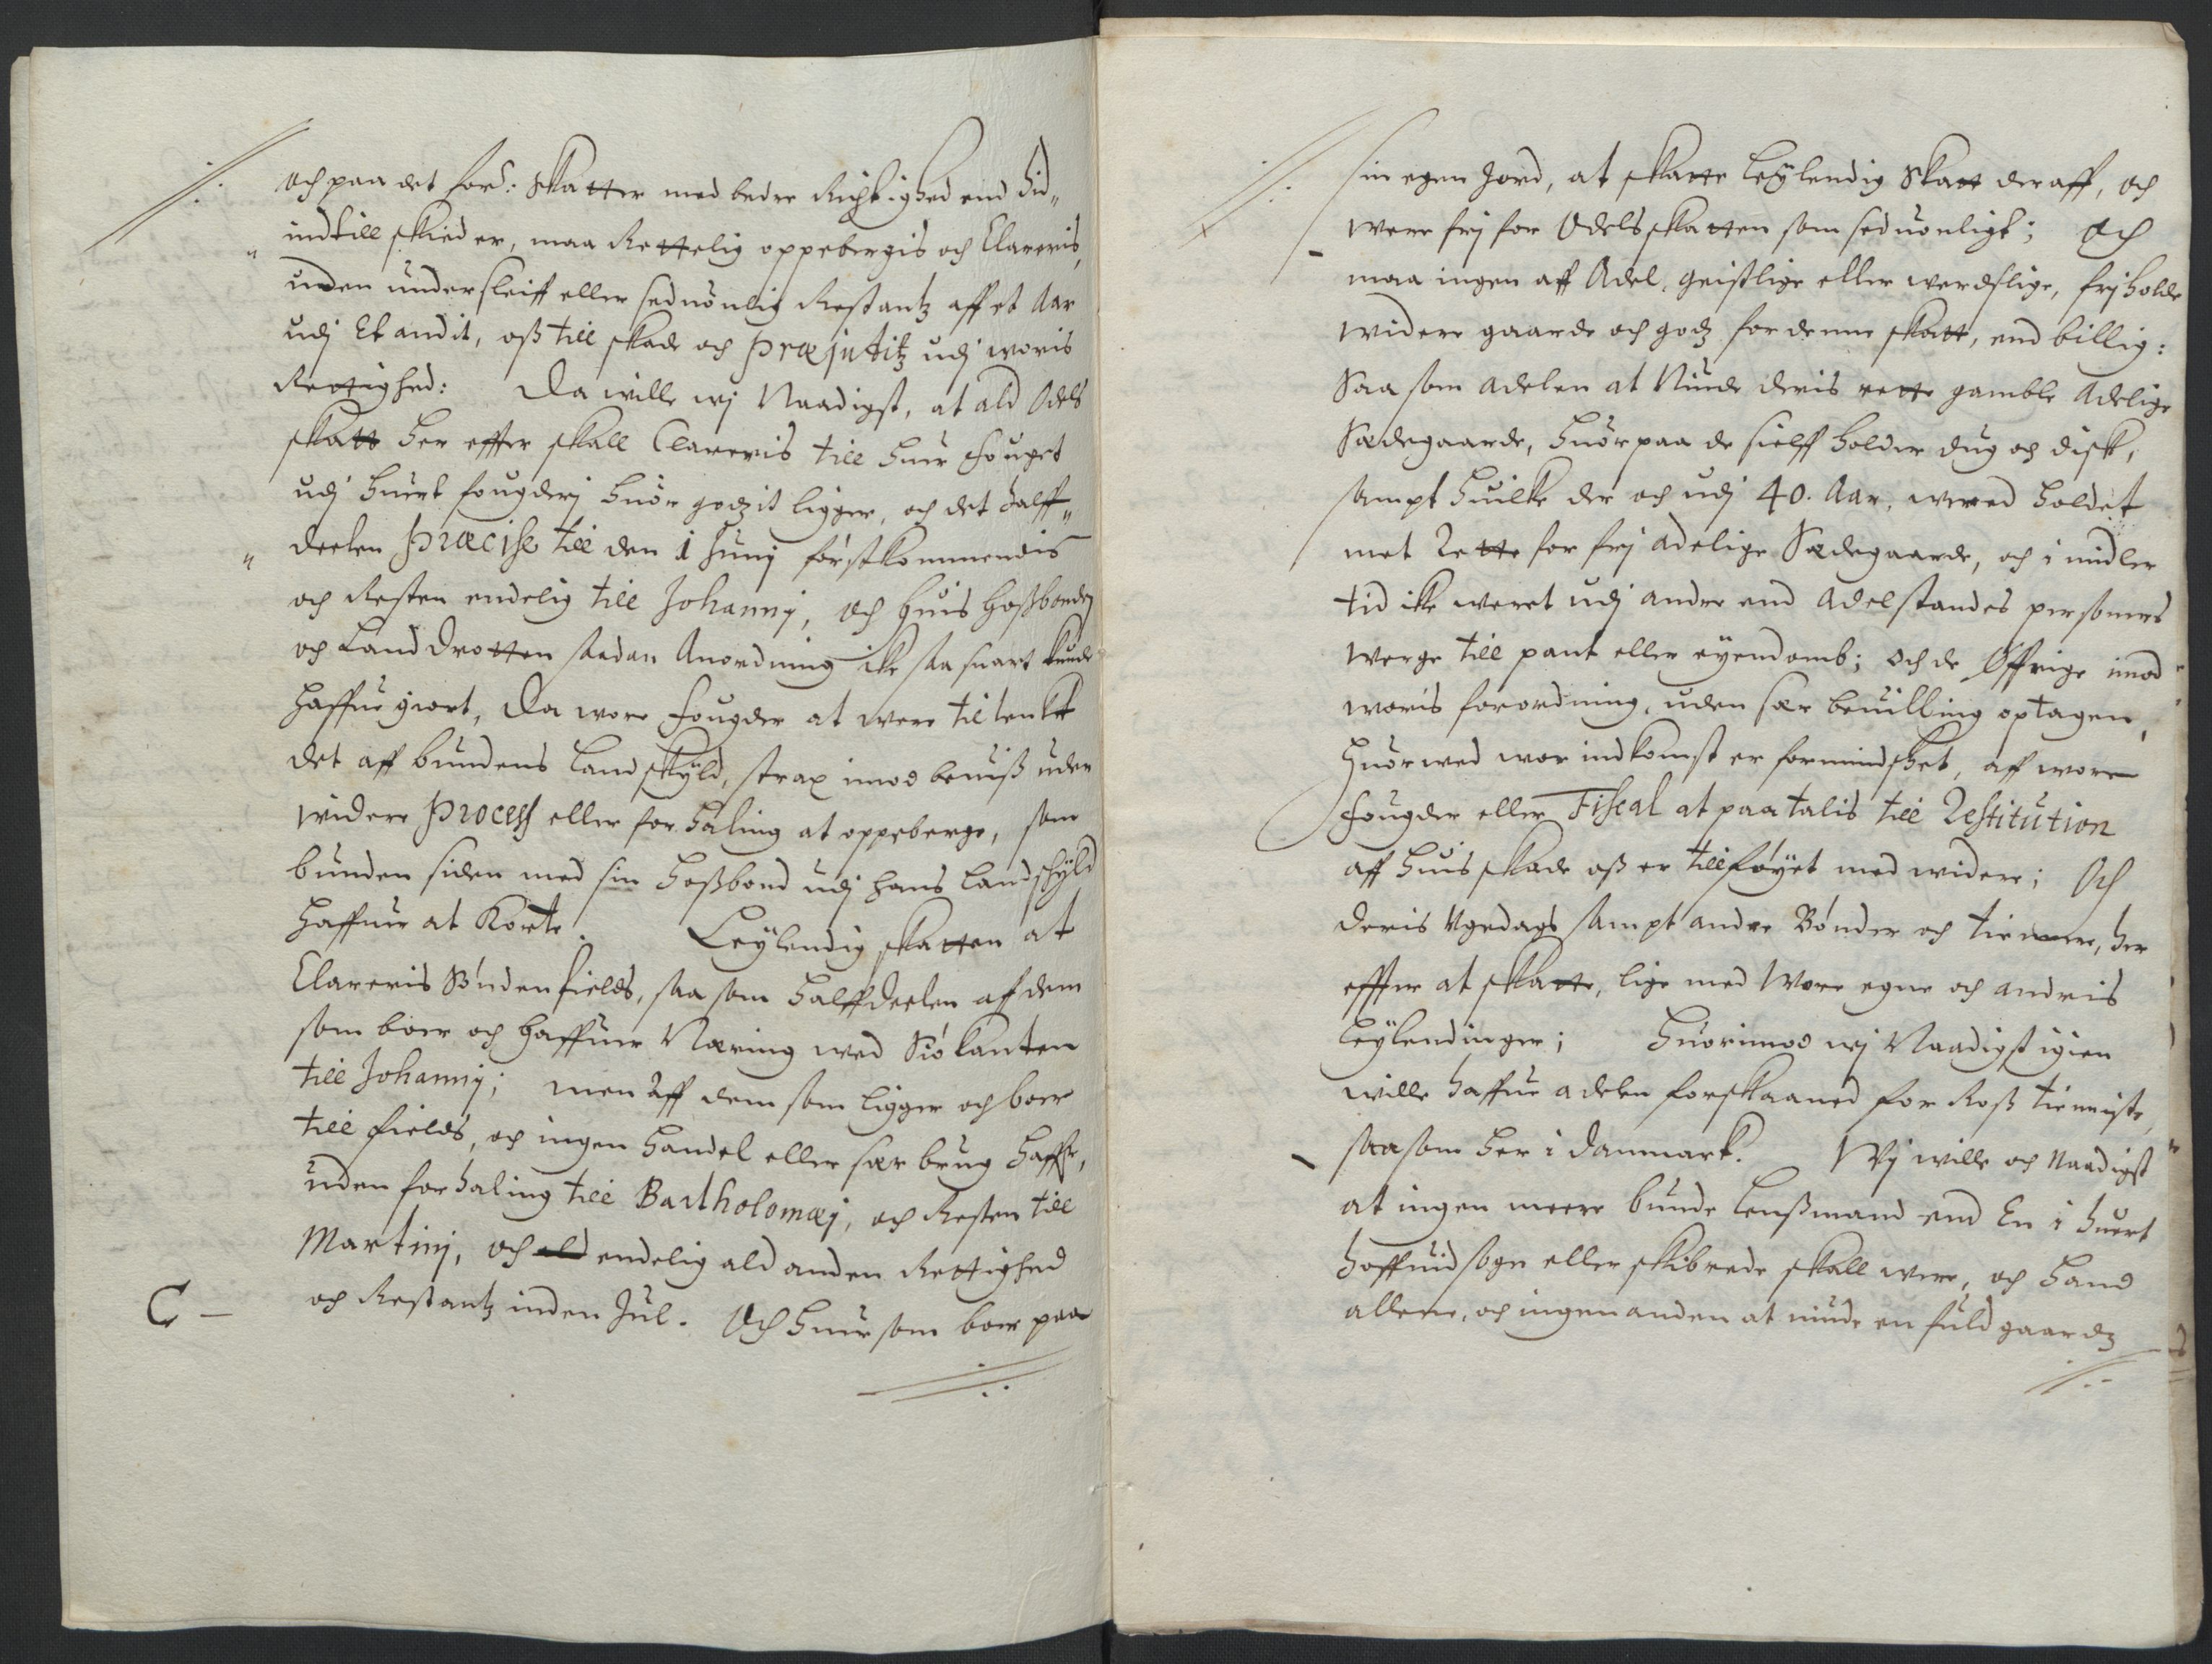 och paa det forⁿᵉ: skatter med bedre Richtighed end hid„
„ indtill skied er, maa Rettelig oppebergis och Clareris,
uden undersleiff eller seduonlig Restantz aff et Aar
udj Et andit, oß till skade och Præjutitz udj woris
Rettighed: Da wille wj Naadigst, at ald Odels
skatt her effter skall Clareris till huer Fouget
udj huert fougderj huor godzit ligger, och det halff„
„ deelen Præcise till den 1 Junij førstkommendis
och Resten endelig till Johannj, och huis Hoßbonden
och Land Drotten saadan Anordning icke saa snart kunde
haffue giort, Da wore Fougder at were tiltenkt
det aff bundens Landskyld, strax imod beuiß uden
widere Process eller forhaling at oppeberge, som
bunden siden med sin hoßbond udj hans Landskyld
haffuer at Korte. Leylendig skatten at
Clareris Søndenfields, saa som halffdeelen af dem
som boer och haffuer Næring wed Siø kanten
till Johannj; men aff dem som ligger och boer
till fields, och ingen handel eller sær brug haffr,
uden forhaling till Bartholomæj, och Resten till
Martinj, och ald endelig ald anden Rettighed
C – och Restantz inden Jul. Och huer som boer paa
sin egen Jord, at skatte Leylendig Skatt deraff, och
were frj for Odelsskatten som seduonligt; Och
maa ingen aff Adel, geistlige eller werdslige, frj holde
widere gaarde och godz for denne skatt, end billig:
Saa som adelen at Niude deris rette gamble Adelige
Sædegaarde, huor paa de sielff holder dug och disk,
sampt huilke der och udj 40. Aar, wered holdet
met Rette for frj adelige Sædegaarde, och i midler
tid icke weret udj andre end Adelstandes personers
werge till pant eller eyendomb; och de Øffrige imod
woris forordning, uden sær beuilling optagen,
Huorwed wor indkomst er formindsket, aff wore
Fougder eller Fiscal at paatalis till Restitution
aff huis skade oß er tillføyet med widere; Och
deris Vgedags sampt andre Bønder och tienere, her
effter at skatte, lige med Wore egne och andris
Leylendinger; Huorimod wj Naadigst igien
wille haffue adelen forskaaned for Roß tienniste,
saasom her i Danmark. Wj wille och Naadigst
at ingen meere bunde Lenßmand end En i huert
hoffuid sogn eller skibrede skall were, och hand
allene, och ingen anden at niude en fuld gaardz